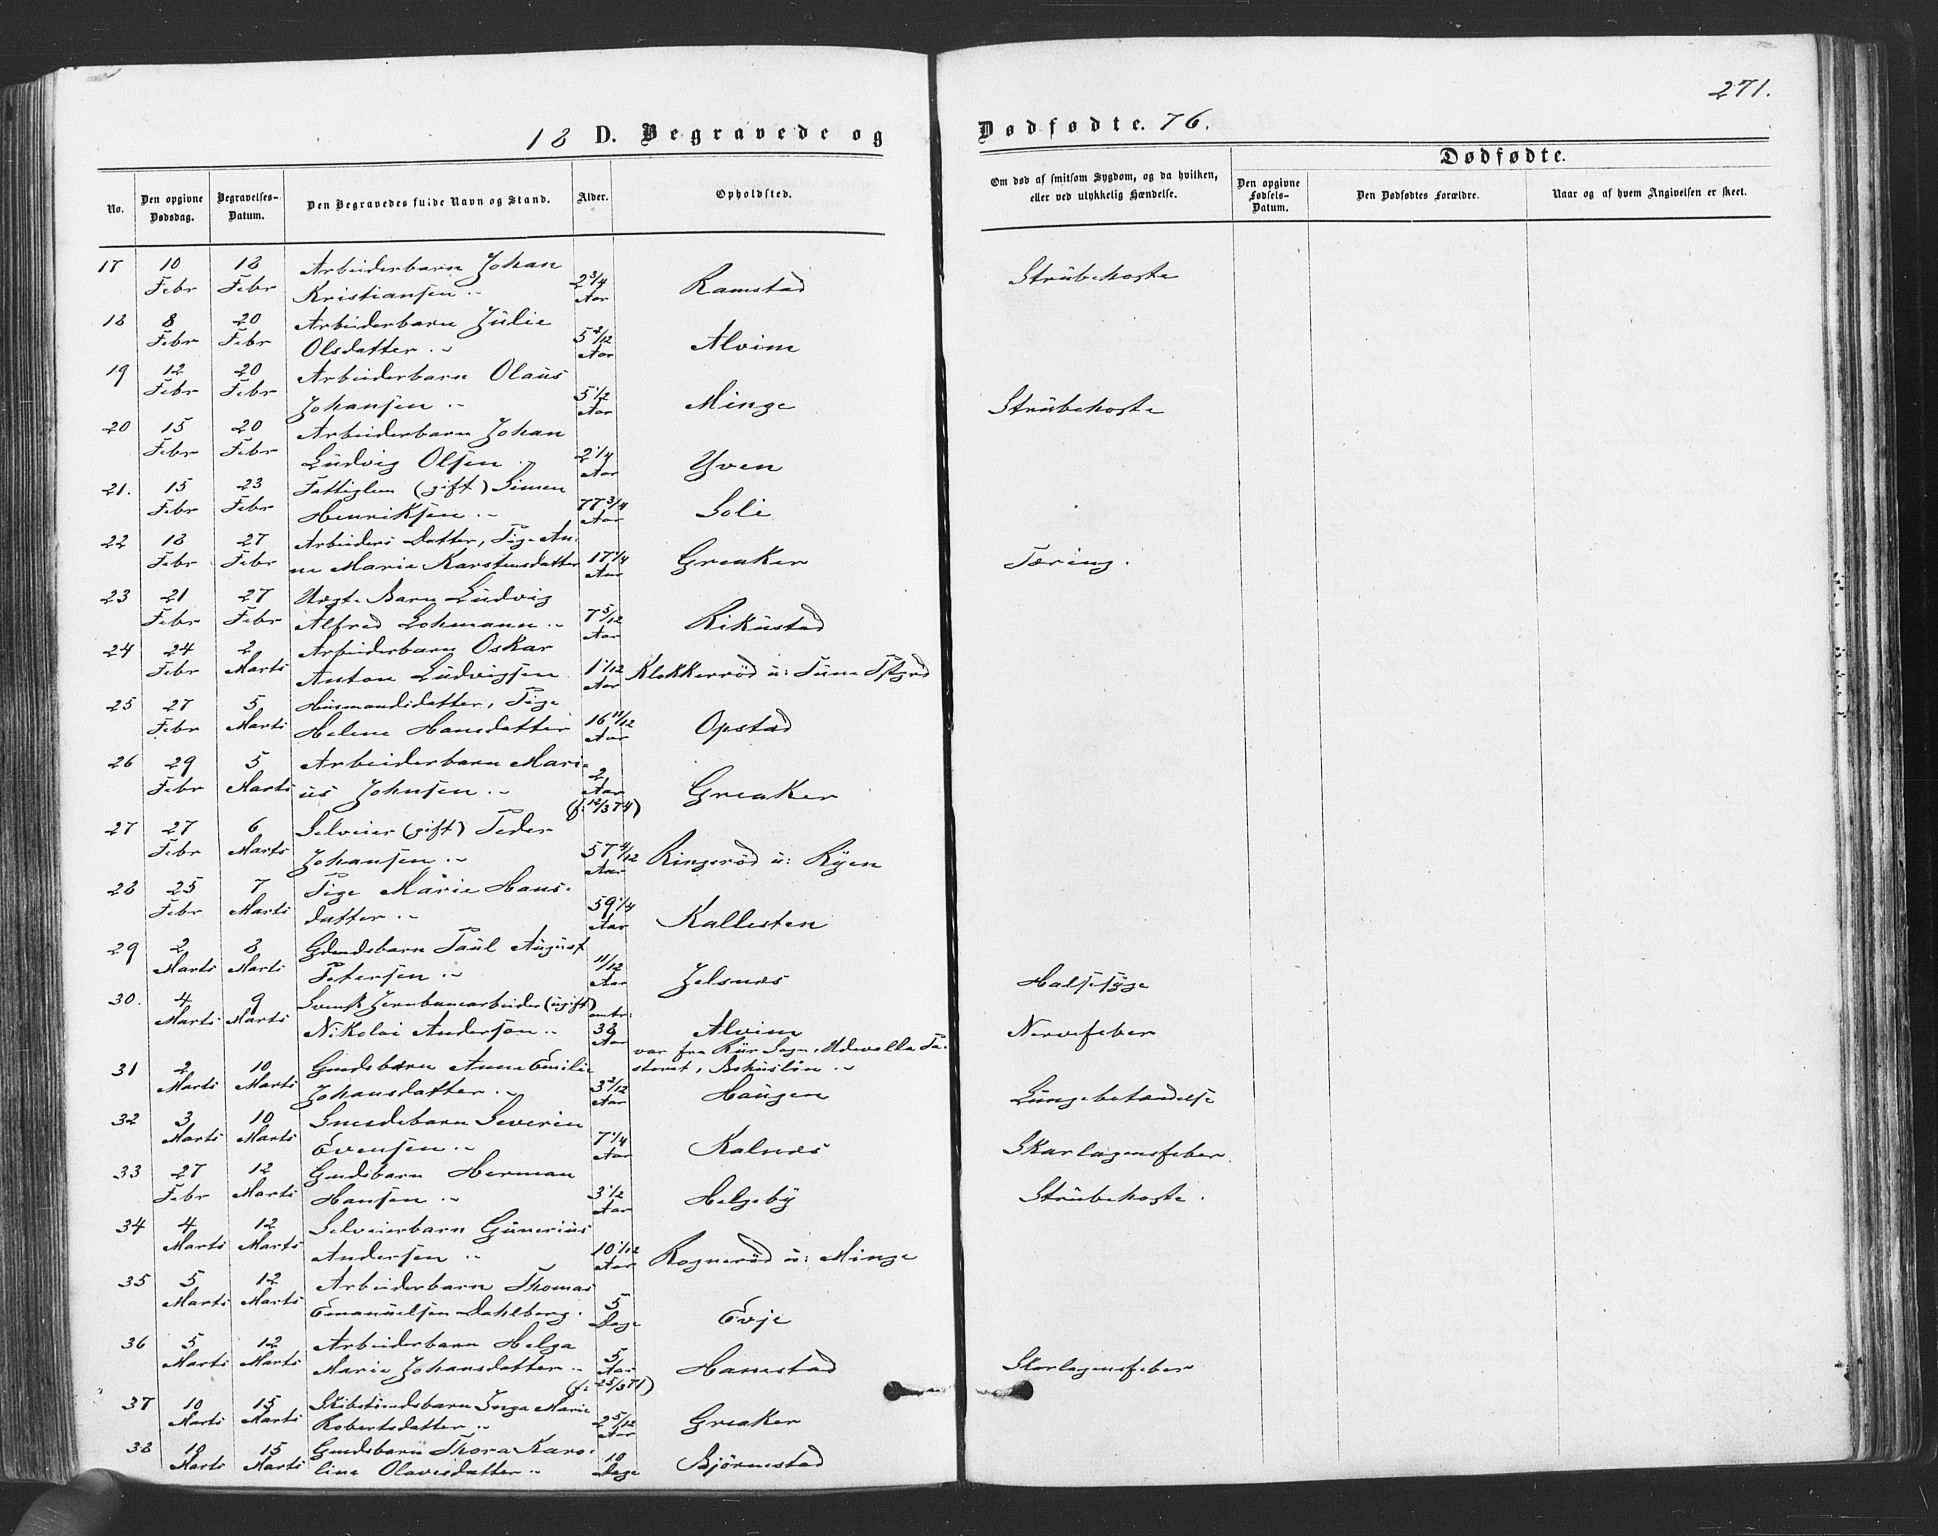 271.
18 D. Begravede og Dødfødte. 76.
Dødfødte.
No.
Den opgivne Dødsdag.
Begravelses-Datum.
Den Begravedes fulde Navn og Stand.
Alder.
Opholdsted.
Om død af smitsom Sygdom, og da hvilken, eller ved ulykkelig Hændelse.
Den opgivne Fødsels-Datum.
Den Dødfødtes Forældre.
Naar og af hvem Angivelsen er skeet.
17 10 Febr 18 Febr Arbeiderbarn Johan Kristiansen 2 3/4 Aar Ramstad Strubehoste
18 8 Febr 20 Febr Arbeiderbarn Julie Olsdatter 5 2/12 Aar Alvim
19 12 Febr 20 Febr Arbeiderbarn Olaus Johansen 5 1/2 Aar Minge Strubehoste
20 15 Febr 20 Febr Arbeiderbarn Johan Ludvig Olsen 2 1/4 Aar Yven
21. 15 Febr 23 Febr Fattiglem (gift) Simen Henriksen 77 3/4 Aar Soli
22 18 Febr 27 Febr Arbeiders Datter, Pige Anne Marie Karstensdatter 17 1/4 Aar Greaker Tæring.
23 21 Febr 27 Febr Uægte Barn Ludvig Alfred Lohmann 7 5/12 Aar Rikustad
24 24 Febr 2 Marts Arbeiderbarn Oskar Anton Ludvigsen 1 1/12 Aar Klokkerrød u: Tune Pstgrd
25 27 Febr 5 Marts Husmandsdatter, Pige Helene Hansdatter 16 11/12 Aar Opstad
26 29 Febr 5 Marts Arbeiderbarn Marius Johnsen 2 Aar (f. 12/3 74) Greaker
27 27 Febr 6 Marts Selveier (gift) Peder Johansen 57 4/12 Aar Ringsrød u: Ryen
28 25 Febr 7 Marts Pige Marie Hansdatter 59 1/4 Aar Kallesten
29 2 Marts 8 Marts Gmdsbarn Paul August Petersen 11/12 Aar Jelsnæs Halssyge
30. 4 Marts 9 Marts Svensk Jernbanearbeider (ugift) Nikolai Anderson omtr: 38 Aar Alvim var fra Kür Sogn, Udevalla Pastorat, Bohuslän Nervefeber
31 2 Marts 10 Marts Gmdsbarn Anne Emilie Johansdatter 3 2/12 Aar Haugen Lungebetændelse
32 3 Marts 10 Marts Smedebarn Severin Evensen 7 1/4 Aar Kalnæs Skarlagensfeber.
33 27 Febr 12 Marts Gmdsbarn Herman Hansen 3 1/2 Aar Helgeby Strubehoste.
34 4 Marts 12 Marts Selveierbarn Gunerius Andersen 10 1/12 Aar Rognerød u: Minge
35 5 Marts 12 Marts Arbeiderbarn Thomas Emanuelsen Dahlberg. 5 Dage Evje
36 5 Marts 12 Marts Arbeiderbarn Helga Marie Johansdatter 5 Aar (f: 25/3 71) Hamstad Skarlagensfeber
37 10 Marts 15 Marts Skibstmdsbarn Inga Marie Robertsdatter 2 5/12 Aar Greaker
38 10 Marts 15 Marts Gmdsbarn Thora Karoline Olavesdatter 10 Dage Bjørnstad